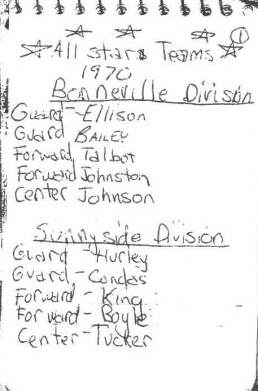 1
All stars Teams
1970
Bonneville Division
Guard - Ellison
Guard BAILEY
Forward Talbot
Forward Johnston
Center Johnson
Sunnyside Division
Guard - Hurley
Guard - Condas
Forward - King
Forward - Boyle
Center - Tucker